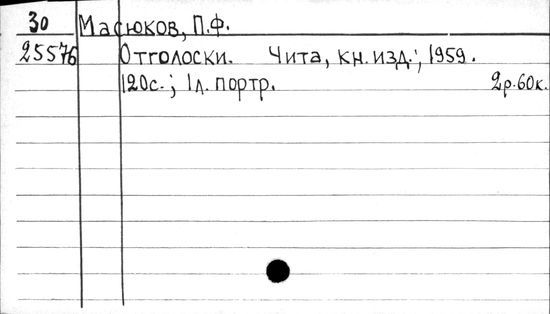 30 Масюков, П.Ф.
25576 Отголоски. Чита, кн. изд.; 1959.
120с.; 1л. портр. 2р.60к.